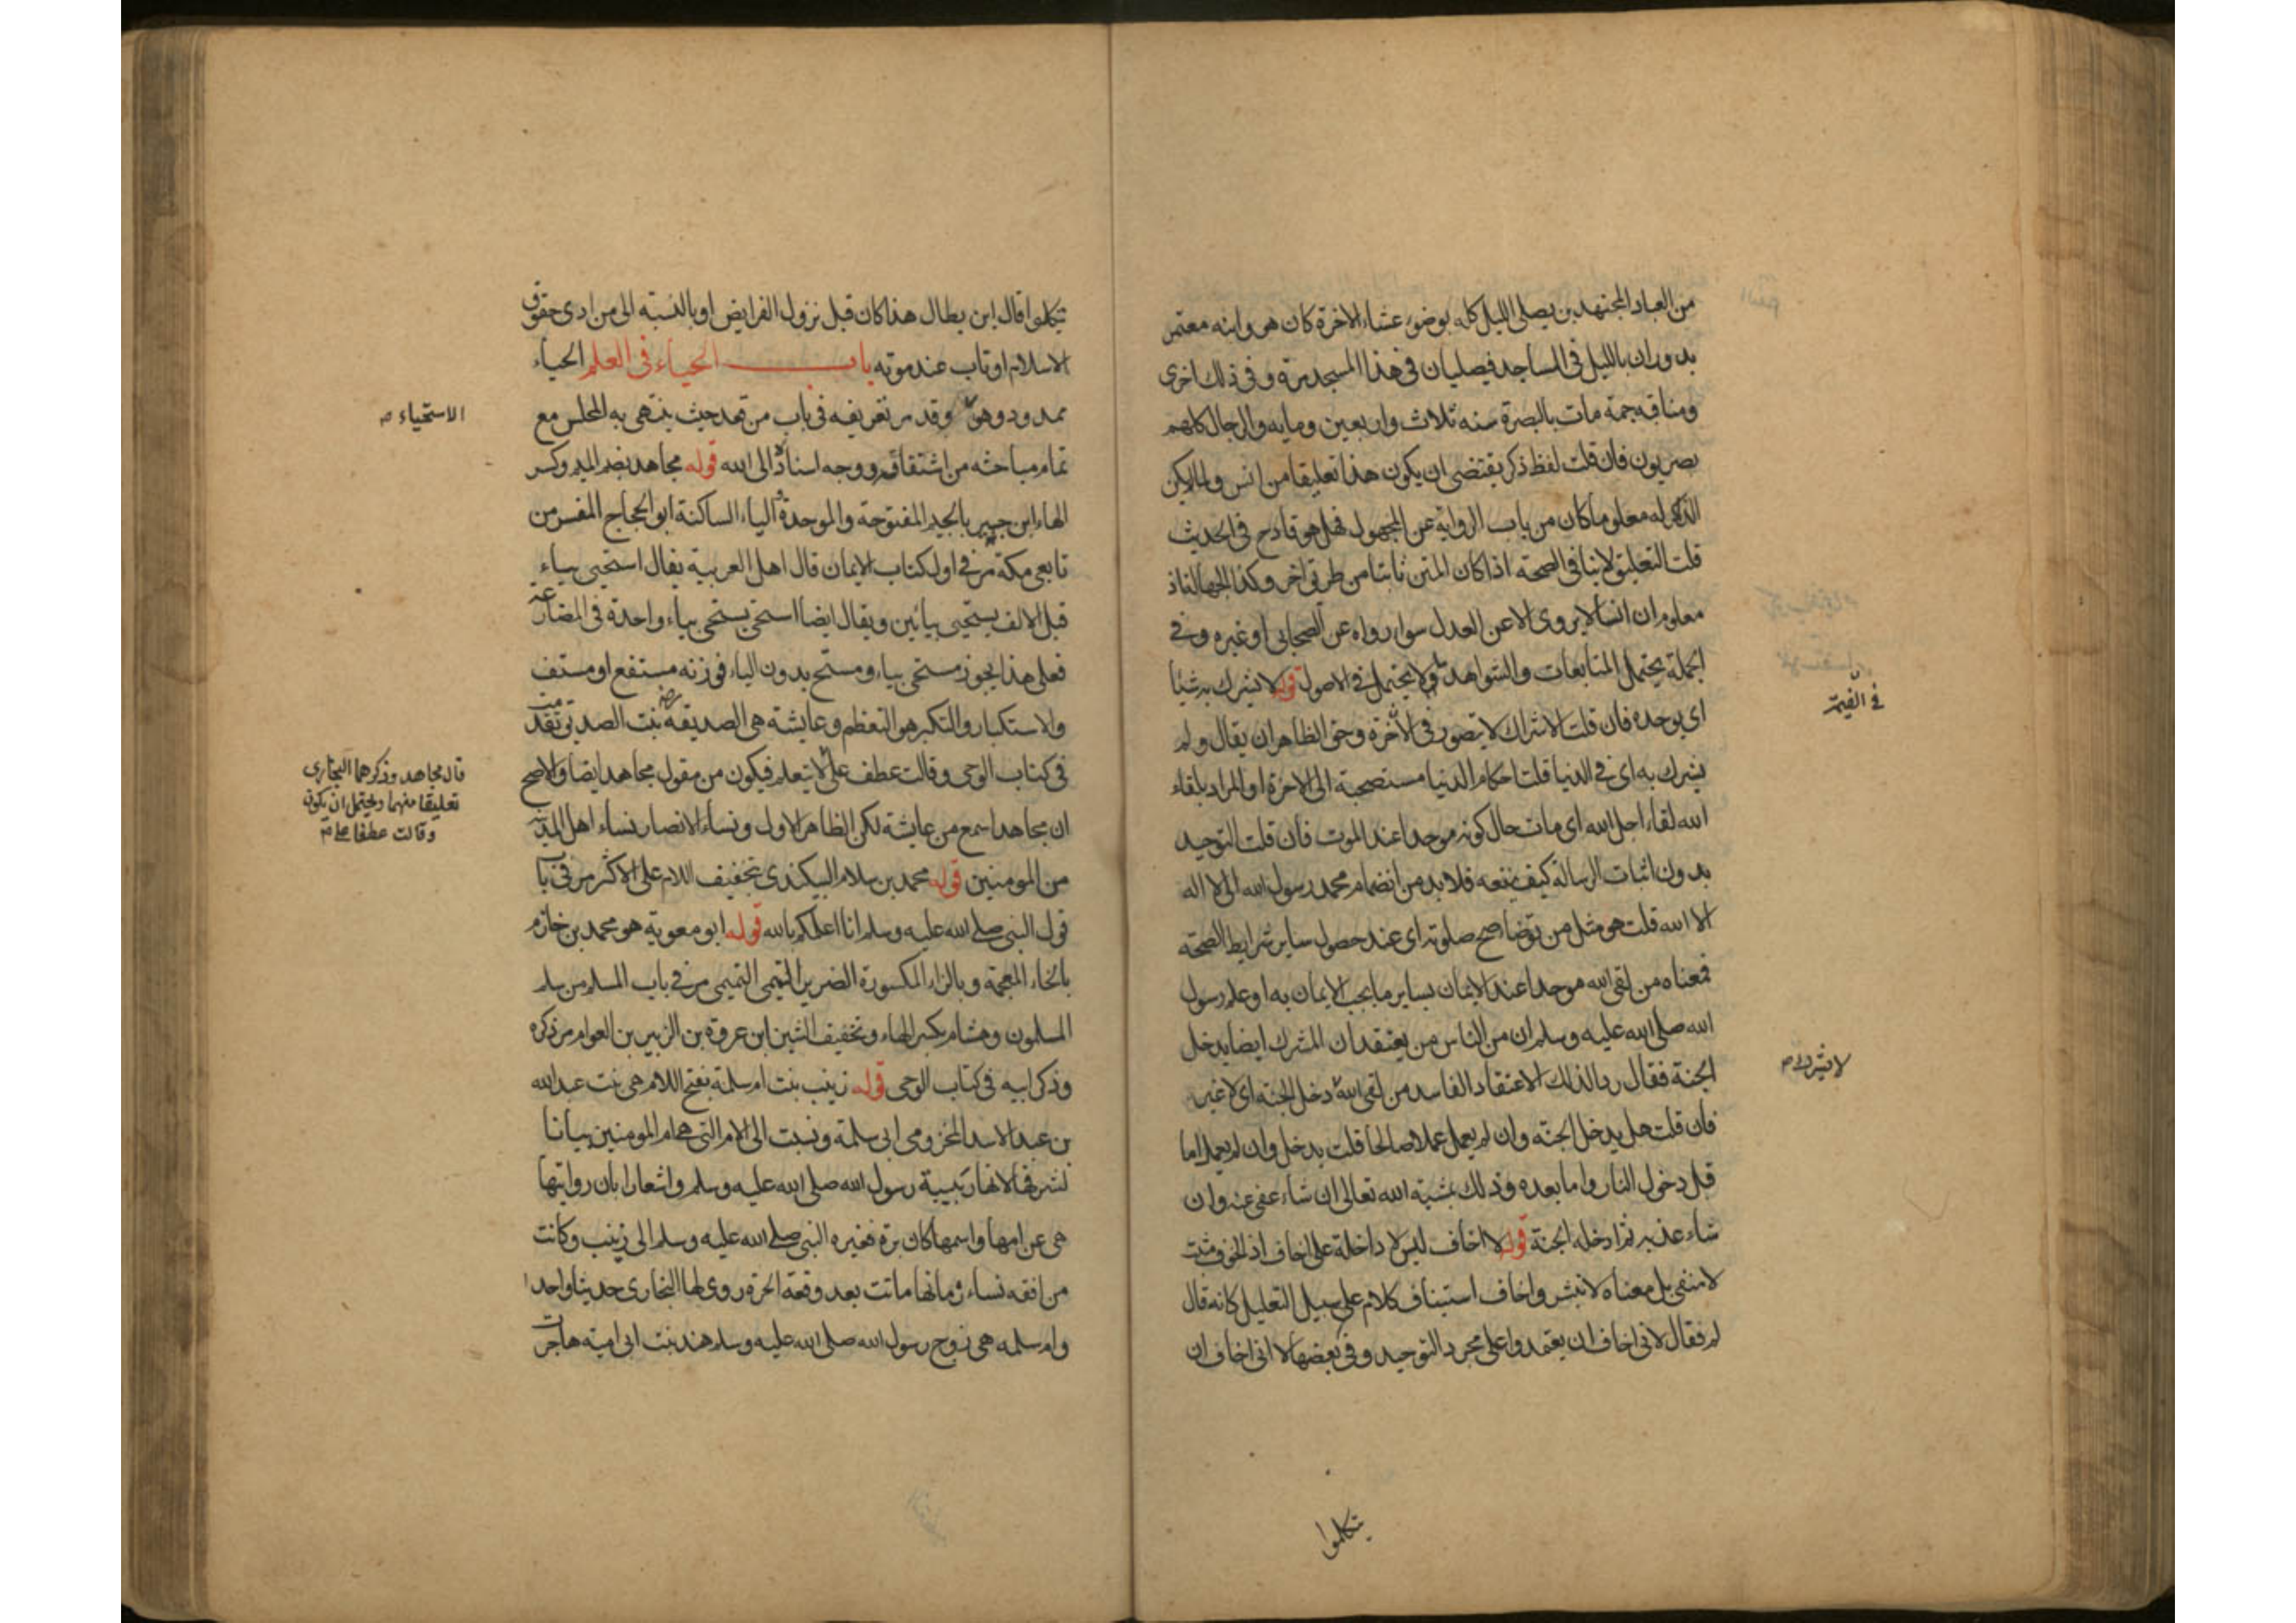 من العباد المجتهدين يصلى الليل كله بوضوء عشاء الاخرة كان هو وابنه معتمر
يدوران بالليل فى المساجد فيصليان فى هذا المسجد مرة وفى ذلك اخرى
ومناقبه جمة مات بالبصرة سنه ثلاث واربعين ومايه والرجال كلهم
بصريون فان قلت لفظ ذكر يقتضى ان يكون هذا تعليقا من انس ولما لم يكن
الذاكر له معلوما كان من باب الرواية عن المجهول فهل هو قادح فى الحديث
قلت التعليق لا ينافى الصحة اذا كان المتن ثابتا من طريق اخر وكذا الجهالة اذ
معلوم ان انسا لا يروى الا عن العدل سواء رواه عن الصحابى او غيره وفى
الجملة يحتمل المتابعات والشواهد ما لا يحتمل فى الاصول قوله لا يشرك به شيئا
اى يوحده فان قلت الاشراك لا يتصور فى الاخرة وحق الظاهر ان يقال ولم
يشرك به اى فى الدنيا قلت احكام الدنيا مستصحبة الى الاخرة او المراد بلقاء
الله لقاء اجل الله اى مات حال كونه موحدا عند الموت فان قلت التوحيد
بدون اثبات الرسالة كيف ينفعه فلا بد من انضمام محمد رسول الله الى لا اله
الا الله قلت هو مثل من توضا صح صلوته اى عند حصول ساير شرايط الصحة
فمعناه من لقى الله موحدا عند الايمان بساير ما يجب الايمان به او علم رسول
الله صلى الله عليه وسلم ان من الناس من يعتقد ان المشرك ايضا يدخل
الجنة فقال ردا لذلك الاعتقاد الفاسد من لقى الله دخل الجنة اى لا غير
فان قلت هل يدخل الجنة وان لم يعمل عملا صالحا قلت يدخل وان لم يعمل اما
قبل دخول النار واما بعده وذلك بمشية الله تعالى ان شاء عفى عنه وان
شاء عذبه ثم ادخله الجنة قوله لا اخاف ليس لا داخلة على اخاف اذ الخوف مثبت
لا منفى بل معناه لا تبشر واخاف استيناف كلام على سبيل التعليل كانه قال
لم فقال لانى اخاف ان يعتمدوا على مجرد التوحيد وفى بعضها لا انى اخاف ان
فى القيمة
لا يشرك به صح
يتكلوا
يتكلوا قال ابن بطال هذا كان قبل نزول الفرايض او بالنسبة الى من ادى حقوق
الاسلام او تاب عند موته باب الحياء فى العلم الحياء
ممدود وهو وقد مر تعريفه فى باب من قعد حيث ينتهى به المجلس مع
تمام مباحثه من اشتقاقه ووجه اسناده الى الله قوله مجاهد بضم الميم وكسر
الهاء ابن جبير بالجيم المفتوحة والموحدة والياء الساكنة ابو الحجاج المفسر من
تابعى مكة مر فى اول كتاب الايمان قال اهل العربية يقال استحيى بياء
قبل الالف يستحيى بيائين ويقال ايضا استحى يستحى بياء واحدة فى المضارع
فعلى هذا يجوز مستحى بياء ومستح بدون الياء فوزنه مستفع او مستف
والاستكبار والتكبر هو التعظم وعايشة هى الصديقة بنت الصديق تقدمت
فى كتاب الوحى وقالت عطف على لا يتعلم فيكون من مقول مجاهد ايضا والاصح
ان مجاهدا سمع من عايشة لكن الظاهر الاول ونساء الانصار نساء اهل المدينة
من المومنين قوله محمد بن سلام البيكندى بتخفيف اللام على الاكثر مر فى باب
قول النبى صلى الله عليه وسلم انا اعلمكم بالله قوله ابو معوية هو محمد بن خازم
بالخاء المعجمة وبالزاء المكسورة الضرير التيمى التميمى مر فى باب المسلم من سلم
المسلمون وهشام بكسر الهاء وتخفيف الشين ابن عروة بن الزبير بن العوام مر ذكره
وذكر ابيه فى كتاب الوحى قوله زينب بنت ام سلمة بفتح اللام هى بنت عبد الله
بن عبد الاسد المخزومى ابى سلمة ونسبت الى الام التى هى ام المومنين بيانا
لشرفها لانها ربيبة رسول الله صلى الله عليه وسلم واشعارا بان روايتها
هى عن امها واسمها كان برة فغيره النبى صلى الله عليه وسلم الى زينب وكانت
من افقه نساء زمانها ماتت بعد وقعة الحرة روى لها البخارى حديثا واحدا
وام سلمه هى زوج رسول الله صلى الله عليه وسلم هند بنت ابى امية هاجرت
الاستحياء صح
قال مجاهد وذكرهما البخارى
تعليقا منهما ويحتمل ان يكون
وقالت عطفا على صح